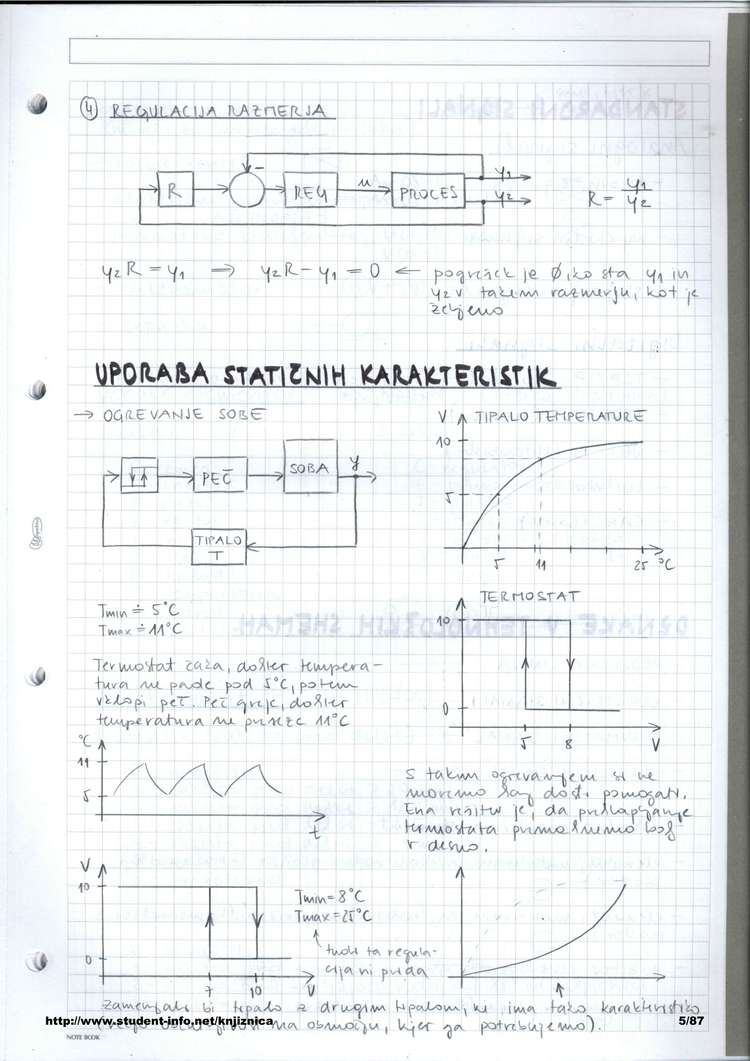 ④ REGULACIJA RAZMERJA
R
−
REG
u
PROCES
y1
y2
R = y1/y2
y2R = y1 ⇒ y2R − y1 = 0 ← pogrešek je Ø, ko sta y1 in
y2 v takem razmerju, kot je
željeno
UPORABA STATIČNIH KARAKTERISTIK
→ OGREVANJE SOBE
PEČ
SOBA
y
TIPALO
T
V
TIPALO TEMPERATURE
10
5
5 11 25 °C
Tmin ≐ 5°C
Tmax ≐ 11°C
TERMOSTAT
10
0
5 8 V
Termostat čaka, dokler tempera-
tura ne pade pod 5°C, potem
vklopi peč. Peč greje, dokler
temperatura ne preseže 11°C
°C
11
5
t
S takim ogrevanjem si ne
moremo kaj dosti pomagati.
Ena rešitev je, da preklapljanje
termostata premaknemo bolj
v desno.
V
10
0
7 10 V
Tmin = 8°C
Tmax = 25°C
tudi ta regula-
cija ni prida
Zamenjali bi tipalo z drugim tipalom, ki ima tako karakteristiko
na območju, kjer ga potrebujemo).
http://www.student-info.net/knjiznica
5/87
NOTE BOOK